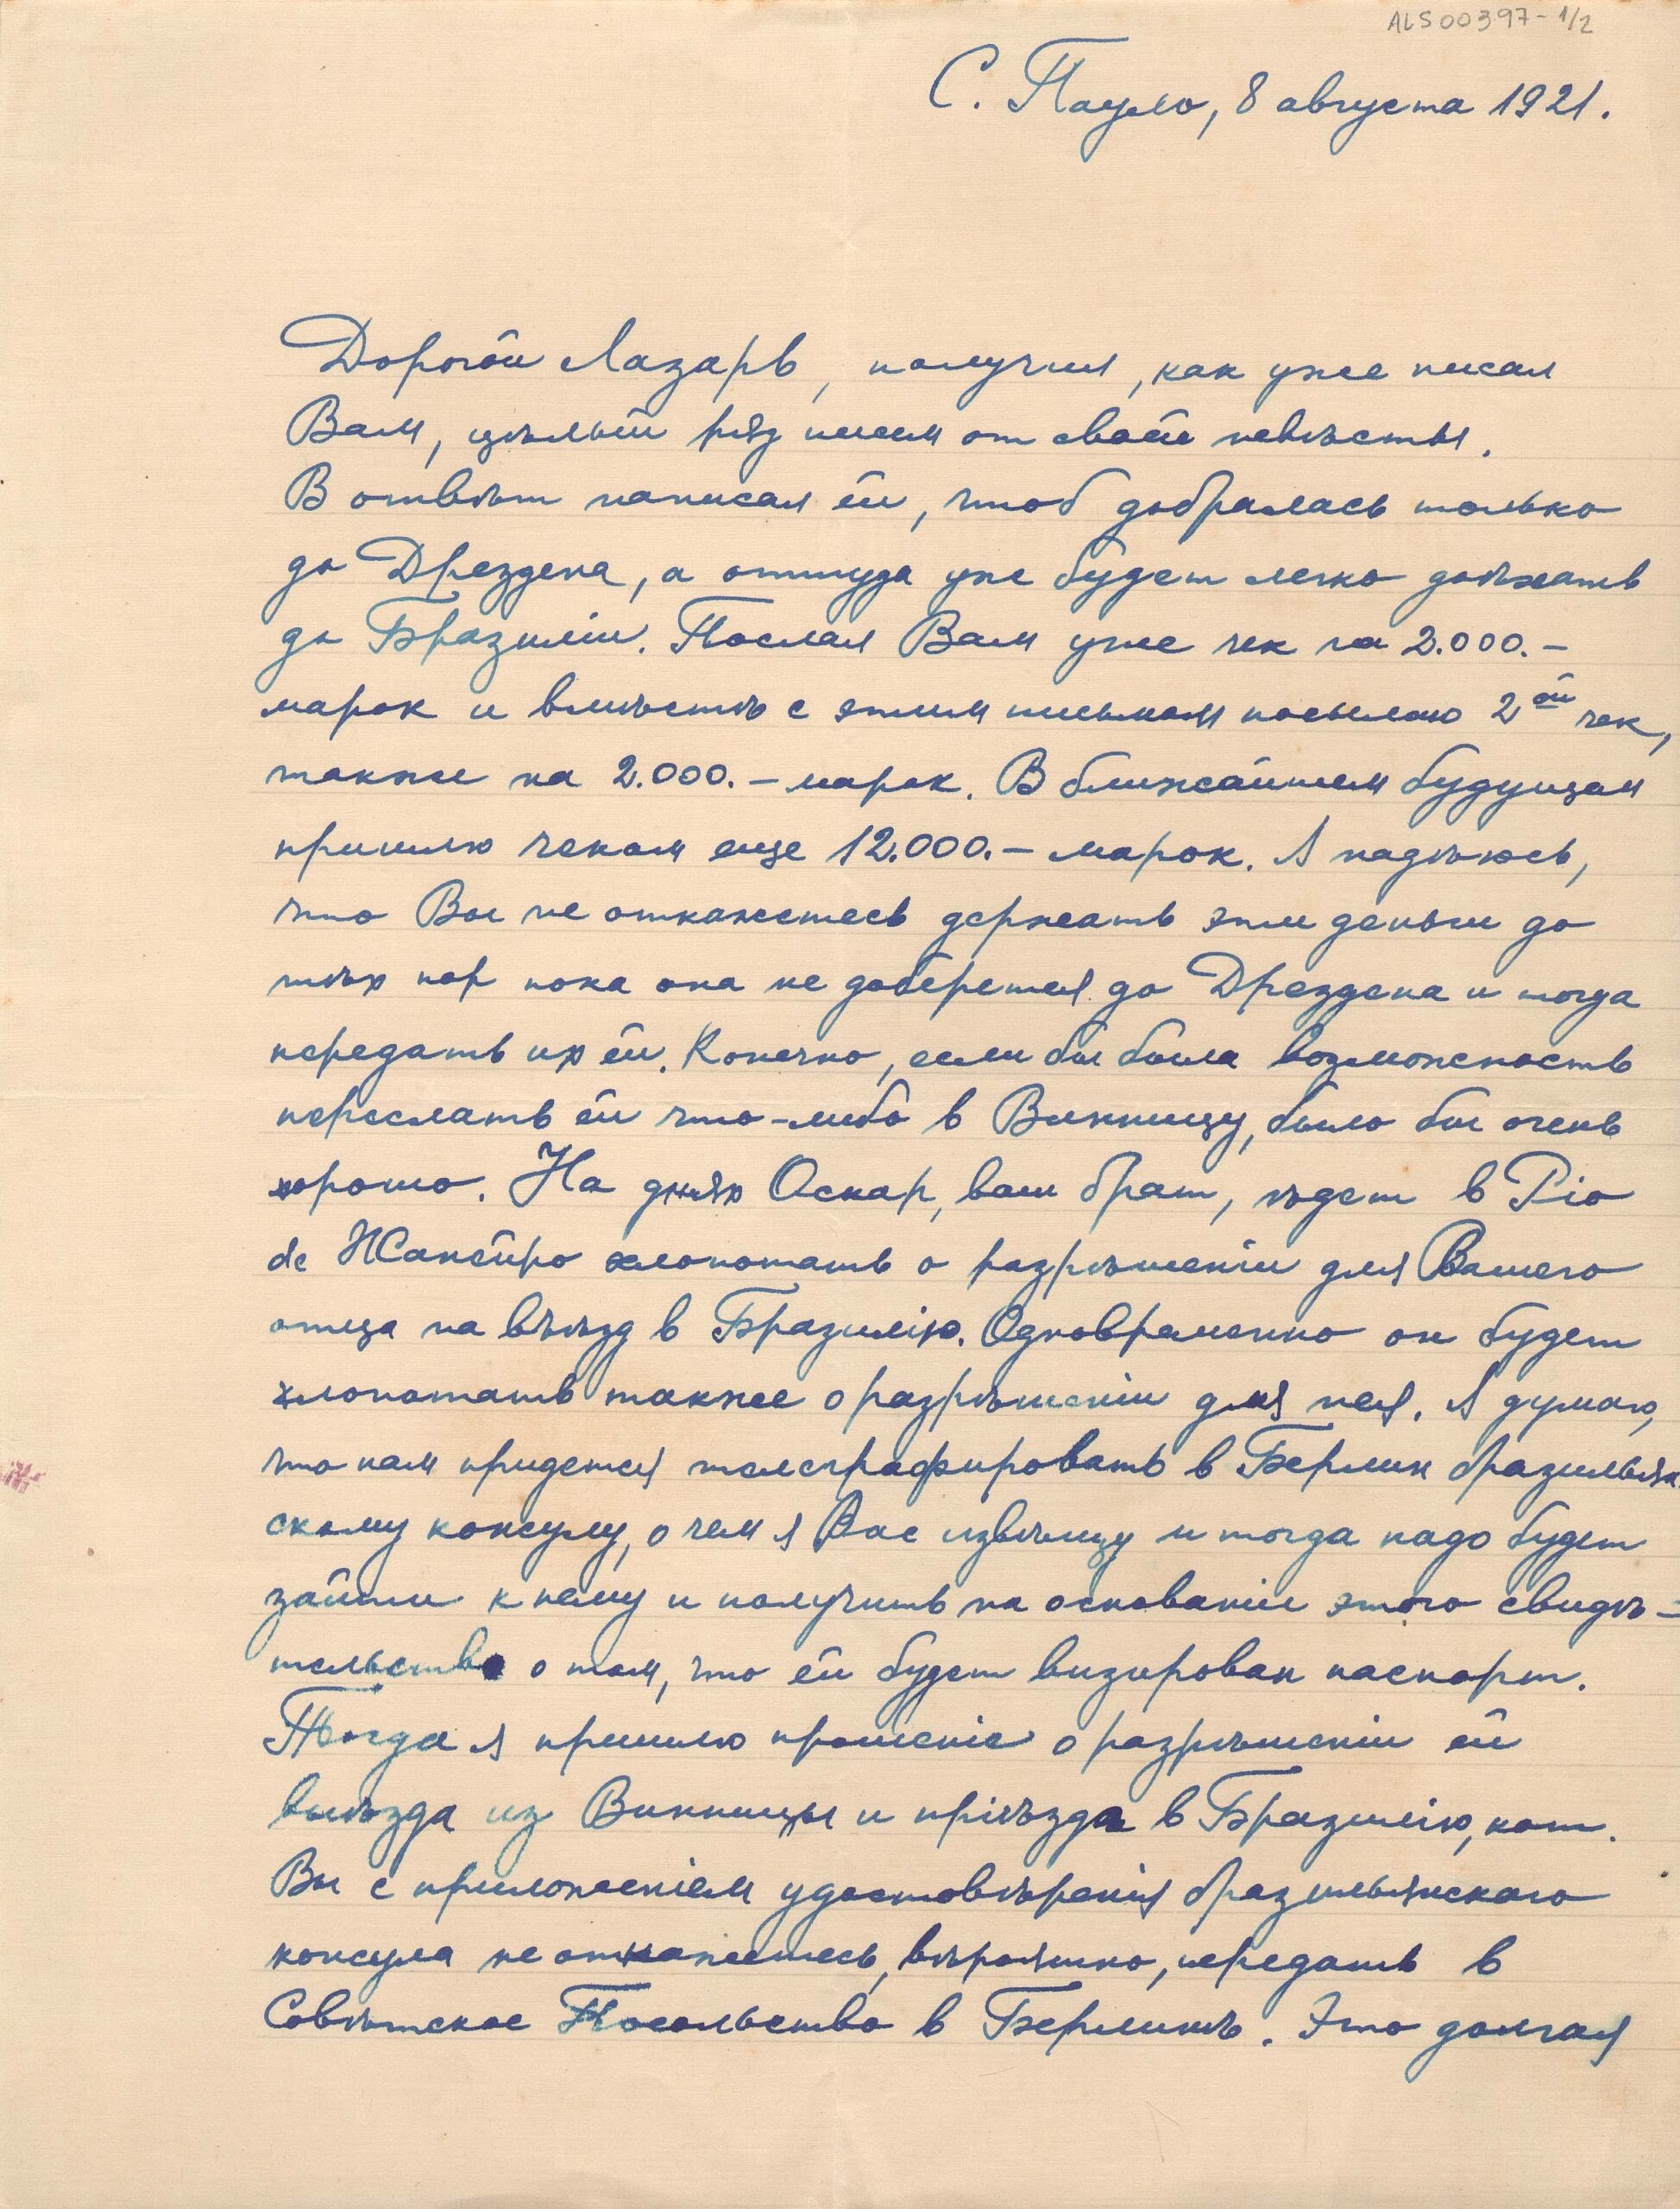 ALS00397-1/2
С. Пауло, 8 августа 1921.
Дорогой Лазарь, получил, как уже писал
Вам, цѣлый ряд писем от своей невѣсты.
В отвѣт написал ей, чтоб добралась только
до Дрездена, а оттуда уже будет легко доѣхать
до Бразиліи. Послал Вам уже чек на 2.000.-
марок и вмѣстѣ с этим письмом посылаю 2ой чек,
также на 2.000.- марок. В ближайшем будущем
пришлю чеком еще 12.000.- марок. Я надѣюсь,
что Вы не откажетесь держать эти деньги до
тѣх пор пока она не доберется до Дрездена и тогда
передать их ей. Конечно, если бы была возможность
переслать ей что-либо в Винницу, было бы очень
хорошо. На днях Оскар, ваш брат, ѣдет в Ріо
de Жанейро хлопотать о разрѣшеніи для Вашего
отца на въѣзд в Бразилію. Одновременно он будет
хлопотать также о разрѣшеніи для нея. Я думаю,
что нам придется телеграфировать в Берлин бразильян-
скому консулу, о чем я Вас извѣщу и тогда надо будет
зайти к нему и получить на основаніи этого свидѣ-
тельство о том, что ей будет визирован паспорт.
Тогда я пришлю прошеніе о разрѣшеніи ей
выѣзда из Винницы и пріѣзда в Бразилію, кот.
Вы с приложеніем удостовѣренія бразильянскаго
консула не откажетесь, вѣроятно, передать в
Совѣтское Посольство в Берлинѣ. Это долгая